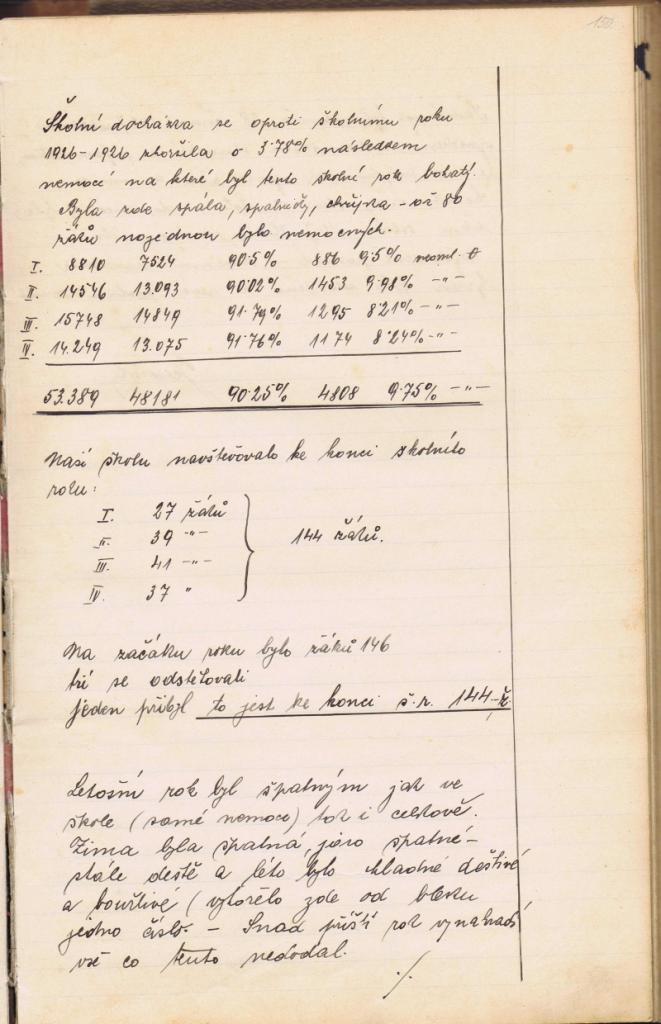 150.
Školní docházka se oproti školnímu roku
1926-1926 zhoršila o 3.78% následkem
nemocí na které byl tento školní rok bohatý.
Byla zde spála, spalničky, chřipka - až 80
žáků najednou bylo nemocných.
I. 8810 7524 90.5% 886 9.5% neoml. θ
II. 14546 13.093 90.02% 1453 9.98% -"-
III. 15748 14849 91.79% 1295 8.21% -"-
IV. 14.249 13.075 91.76% 1174 8.24% -"-
53.389 48181 90.25% 4808 9.75% -"-
Naší školu navštěvovalo ke konci školního
roku:
I. 27 žáků
II. 39 -"-
III. 41 -"-
IV. 37 "
144 žáků.
Na začáku roku bylo žáků 146
tři se odstěhovali
jeden přibyl to jest ke konci š.r. 144 ž.
Letošní rok byl špatným jak ve
škole (samé nemoce) tak i celkově.
Zima byla špatná, jaro špatné -
stále deště a léto bylo chladné deštivé
a bouřlivé (vyhořelo zde od blesku
jedno číslo. - Snad příští rok vynahradí
vše co tento nedodal.
./.